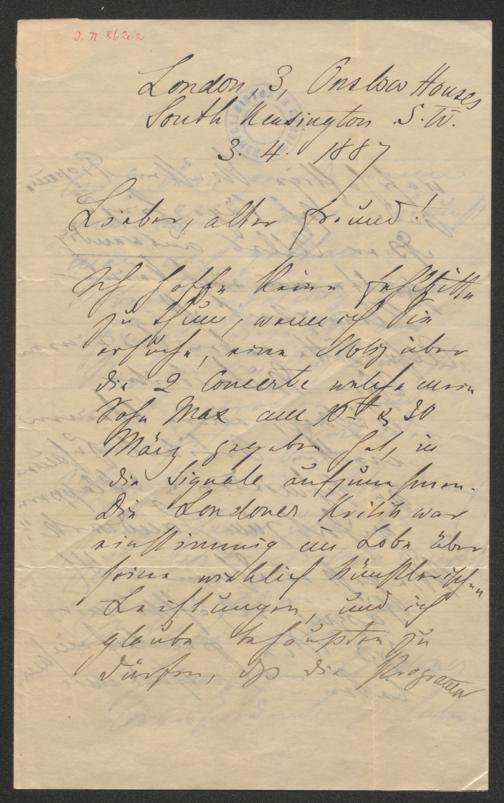 J. N. 86202
London, 3, Onslow Houses
South Kensington S. W.
3. 4. 1887
Lieber, alter Freund!
Ich hoffe keine Fehlbitte
zu thun, wenn ich Sie
ersuche, eine Notiz über
die 2 Concerte welche mein
Sohn Max am 10t & 30
März gegeben hat, in
die Signale aufzunehmen.
Die Londoner Kritik war
einstimmig im Lobe über
seine wirklich künstlerischen
Leistungen, und ich
glaube behaupten zu
dürfen, dß die Programme